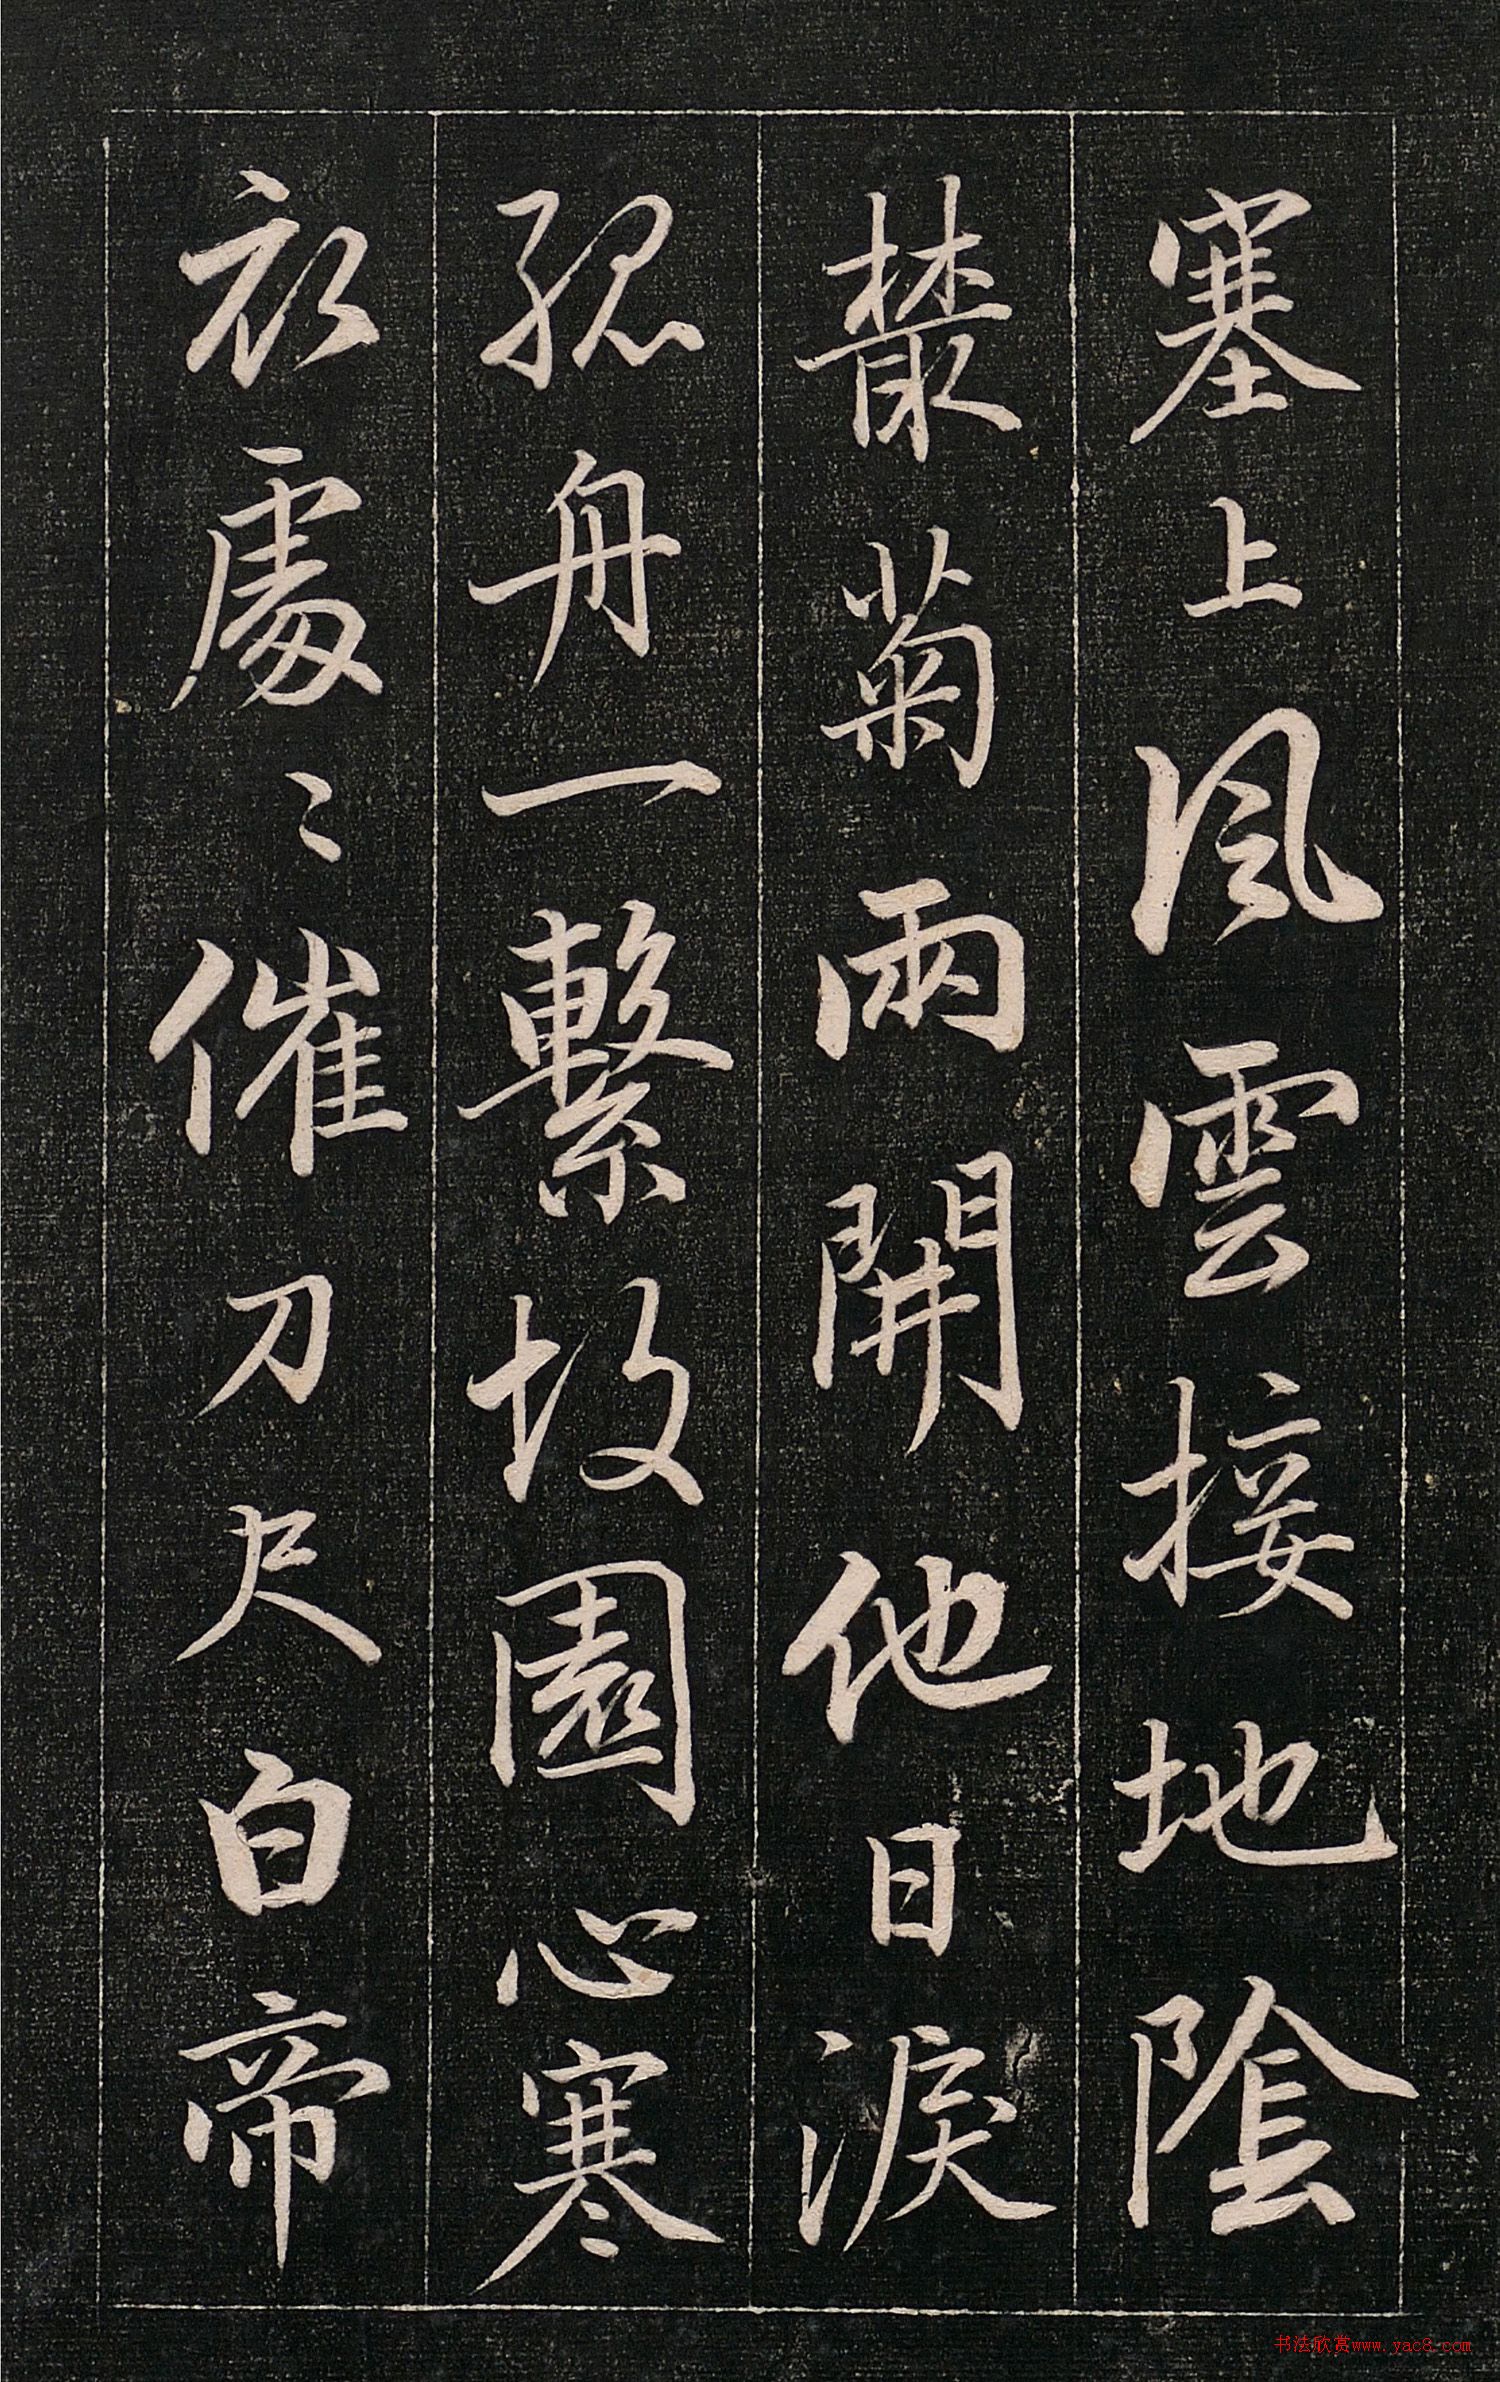 塞上風雲接地陰
叢菊兩開他日淚
孤舟一繫故園心寒
衣處〻催刀尺白帝
书法欣赏www.yac8.com